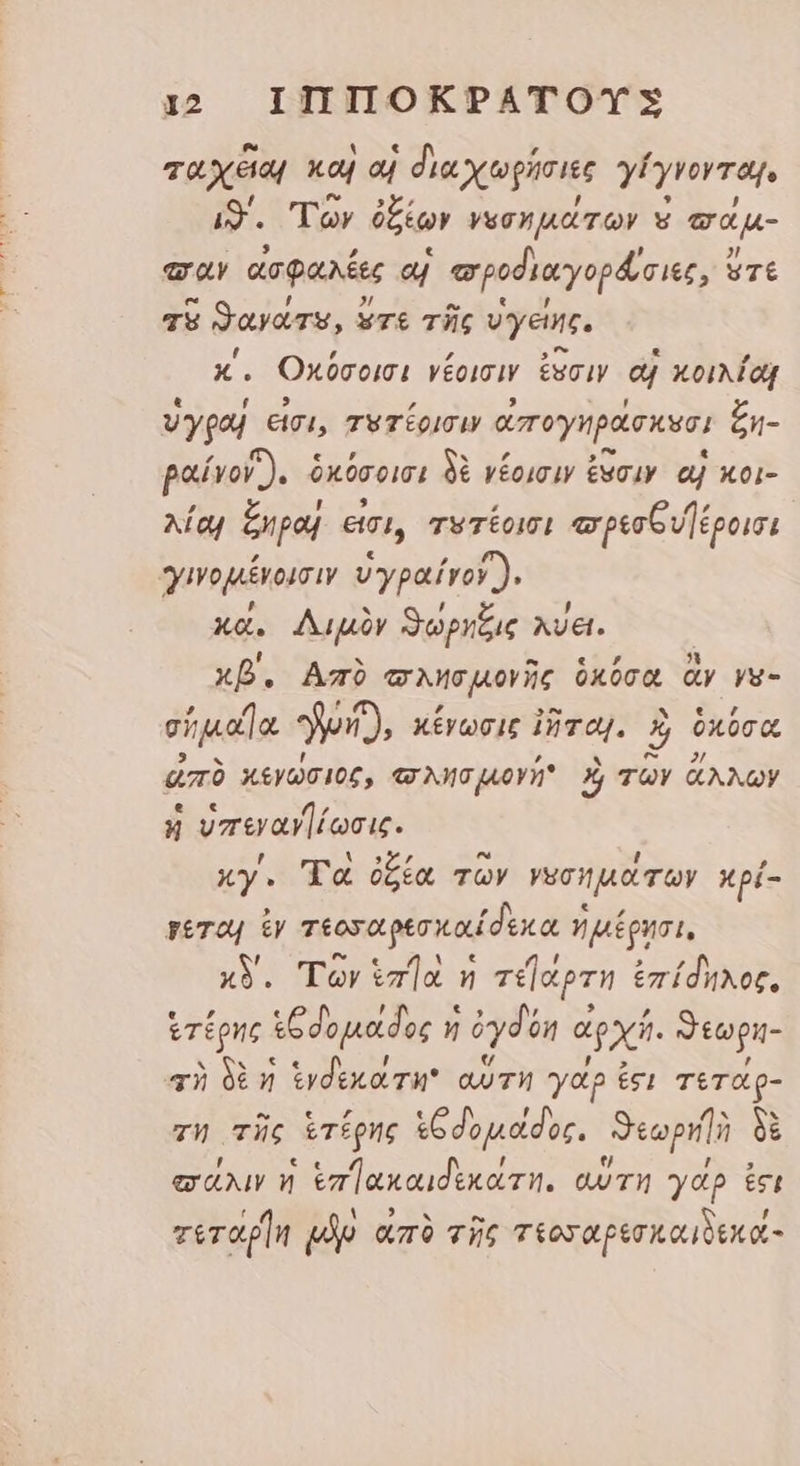 12 ΙΠΠΟΚΡΑΤΟΥΣ
ταχεῖαι καὶ αἱ διαχωρήσιες γίγνονται.
ιθ'. Τῶν ὀξέων νουσημάτων οὐ πάμ-
παν ἀσφαλέες αἱ προδιαγορεύσιες, οὔτε
τοῦ θανάτου, οὔτε τῆς ὑγείης.
κ'. Οκόσοισι νέοισιν ἐοῦσιν αἱ κοιλίαι
ὑγραὶ εἰσι, τουτέοισιν ἀπογηράσκουσι ξη-
ραίνονται. ὁκόσοισι δὲ νέοισιν ἐοῦσιν αἱ κοι-
λίαι ξηραὶ εἰσι, τουτέοισι πρεσβυτέροισι
γινομένοισιν ὑγραίνονται.
κά. Λιμὸν θώρηξις λύει.
κβ'. Απὸ πλησμονῆς ὁκόσα ἂν νου-
σήματα γένηται, κένωσις ἰῆται. καὶ ὁκόσα
ἀπὸ κενώσιος, πλησμονή· καὶ τῶν ἄλλων
ἡ ὑπεναντίωσις.
κγ'. Τὰ ὀξέα τῶν νουσημάτων κρί-
νεται ἐν τεσσαρεσκαίδεκα ἡμέρησι.
κδ'. Τῶν ἑπτὰ ἡ τετάρτη ἐπίδηλος.
ἑτέρης ἑβδομάδος ἡ ὀγδόη ἀρχή. θεωρη-
τὴ δὲ ἡ ἑνδεκάτη· αὕτη γάρ ἐστι τετάρ-
τη τῆς ἑτέρης ἑβδομάδος. θεωρητὴ δὲ
πάλιν ἡ ἑπτακαιδεκάτη. αὕτη γάρ ἐστι
τετάρτη μὲν ἀπὸ τῆς τεσσαρεσκαιδεκά-